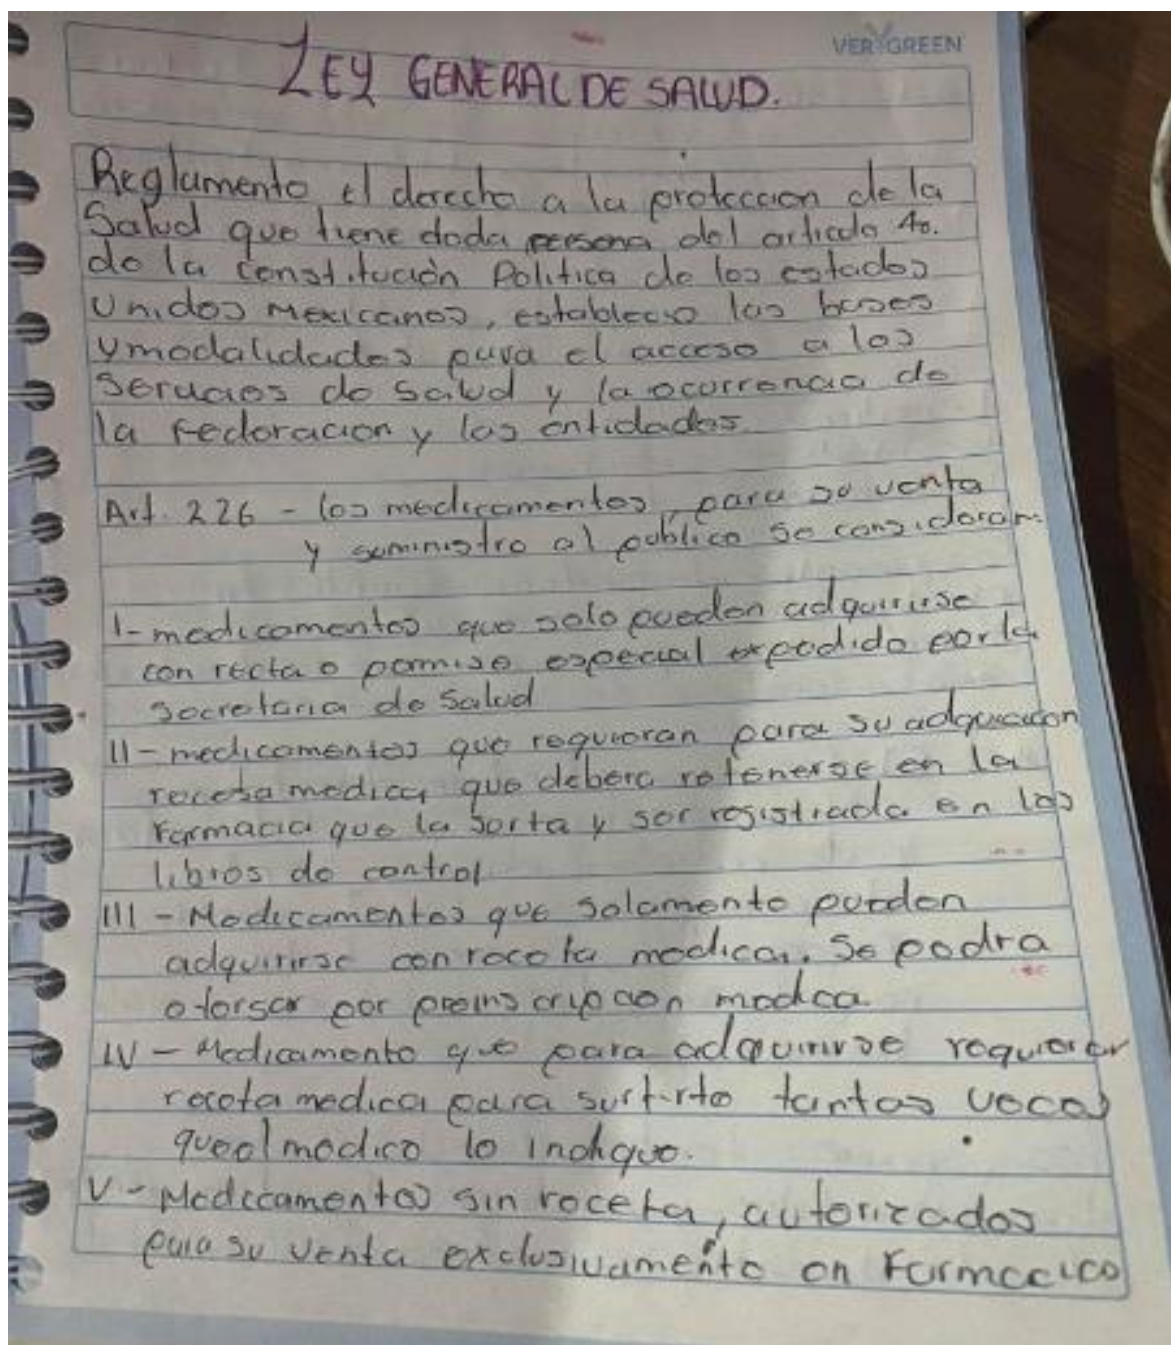 VERYGREEN
LEY GENERAL DE SALUD.
Reglamento el derecho a la proteccion de la
Salud que tiene dada persona del articulo 4o.
de la Constitución Politica de los estados
Unidos Mexicanos, establece las bases
y modalidades para el acceso a los
Servicios de Salud y la ocurrencia de
la Federacion y las entidades.
Art. 226 - los medicamentos, para su venta
y suministro al publico se consideran:
I- medicamentos que solo pueden adquirirse
con recta o permiso especial expedido por la
Secretaria de Salud
II - medicamentos que requieran para su adquisicion
receta medica que debera retenerse en la
Farmacia que la sorta y ser registrada en los
libros de control
III - Medicamentos que solamente pueden
adquirirse con receta medica. Se podra
otorgar por medica.
IV - Medicamento que para adquirirse requieren
receta medica para surtirto tantas veces
que el medico lo indique.
V - Medicamentos sin receta, autorizados
para su venta exclusivamente en Farmacias